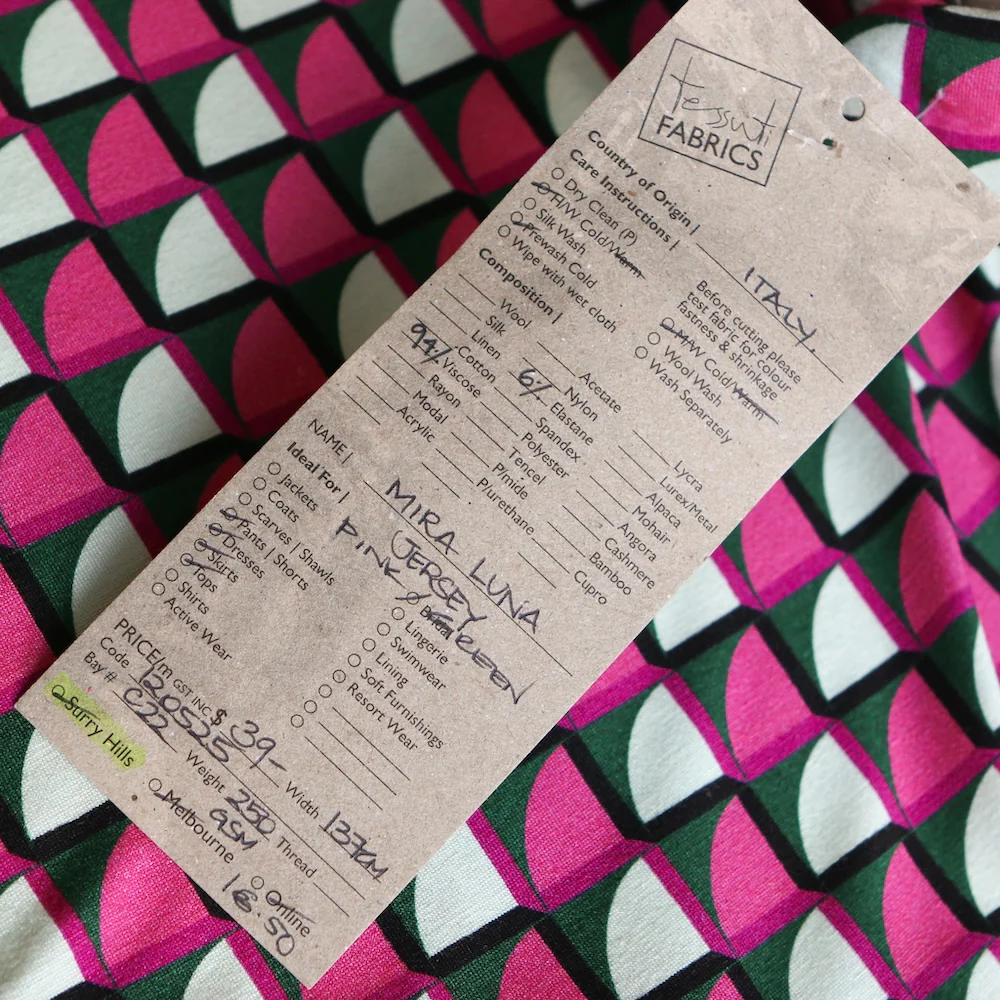 Tessuti
FABRICS
Country of Origin | ITALY.
Care Instructions |
Dry Clean (P)
H/W Cold/Warm
Silk Wash
Prewash Cold
Wipe with wet cloth
Before cutting please
test fabric for colour
fastness & shrinkage
M/W Cold/Warm
Wool Wash
Wash Separately
Composition |
Wool
Silk
Linen
94% Cotton
Viscose
Rayon
Modal
Acrylic
Acetate
Nylon
6% Elastane
Spandex
Polyester
Tencel
P/mide
P/urethane
Lycra
Lurex/Metal
Alpaca
Mohair
Angora
Cashmere
Bamboo
Cupro
NAME | MIRA LUNA
JERSEY
PINK GREEN
Ideal For |
Jackets
Coats
Scarves | Shawls
Pants | Shorts
Dresses
Skirts
Tops
Shirts
Active Wear
Bridal
Lingerie
Swimwear
Lining
Soft Furnishings
Resort Wear
PRICE/m GST INC $ 39-
Code 120525
Width 137CM
Bay # C22
Weight 250 GSM
Thread
Surry Hills
Melbourne
Online